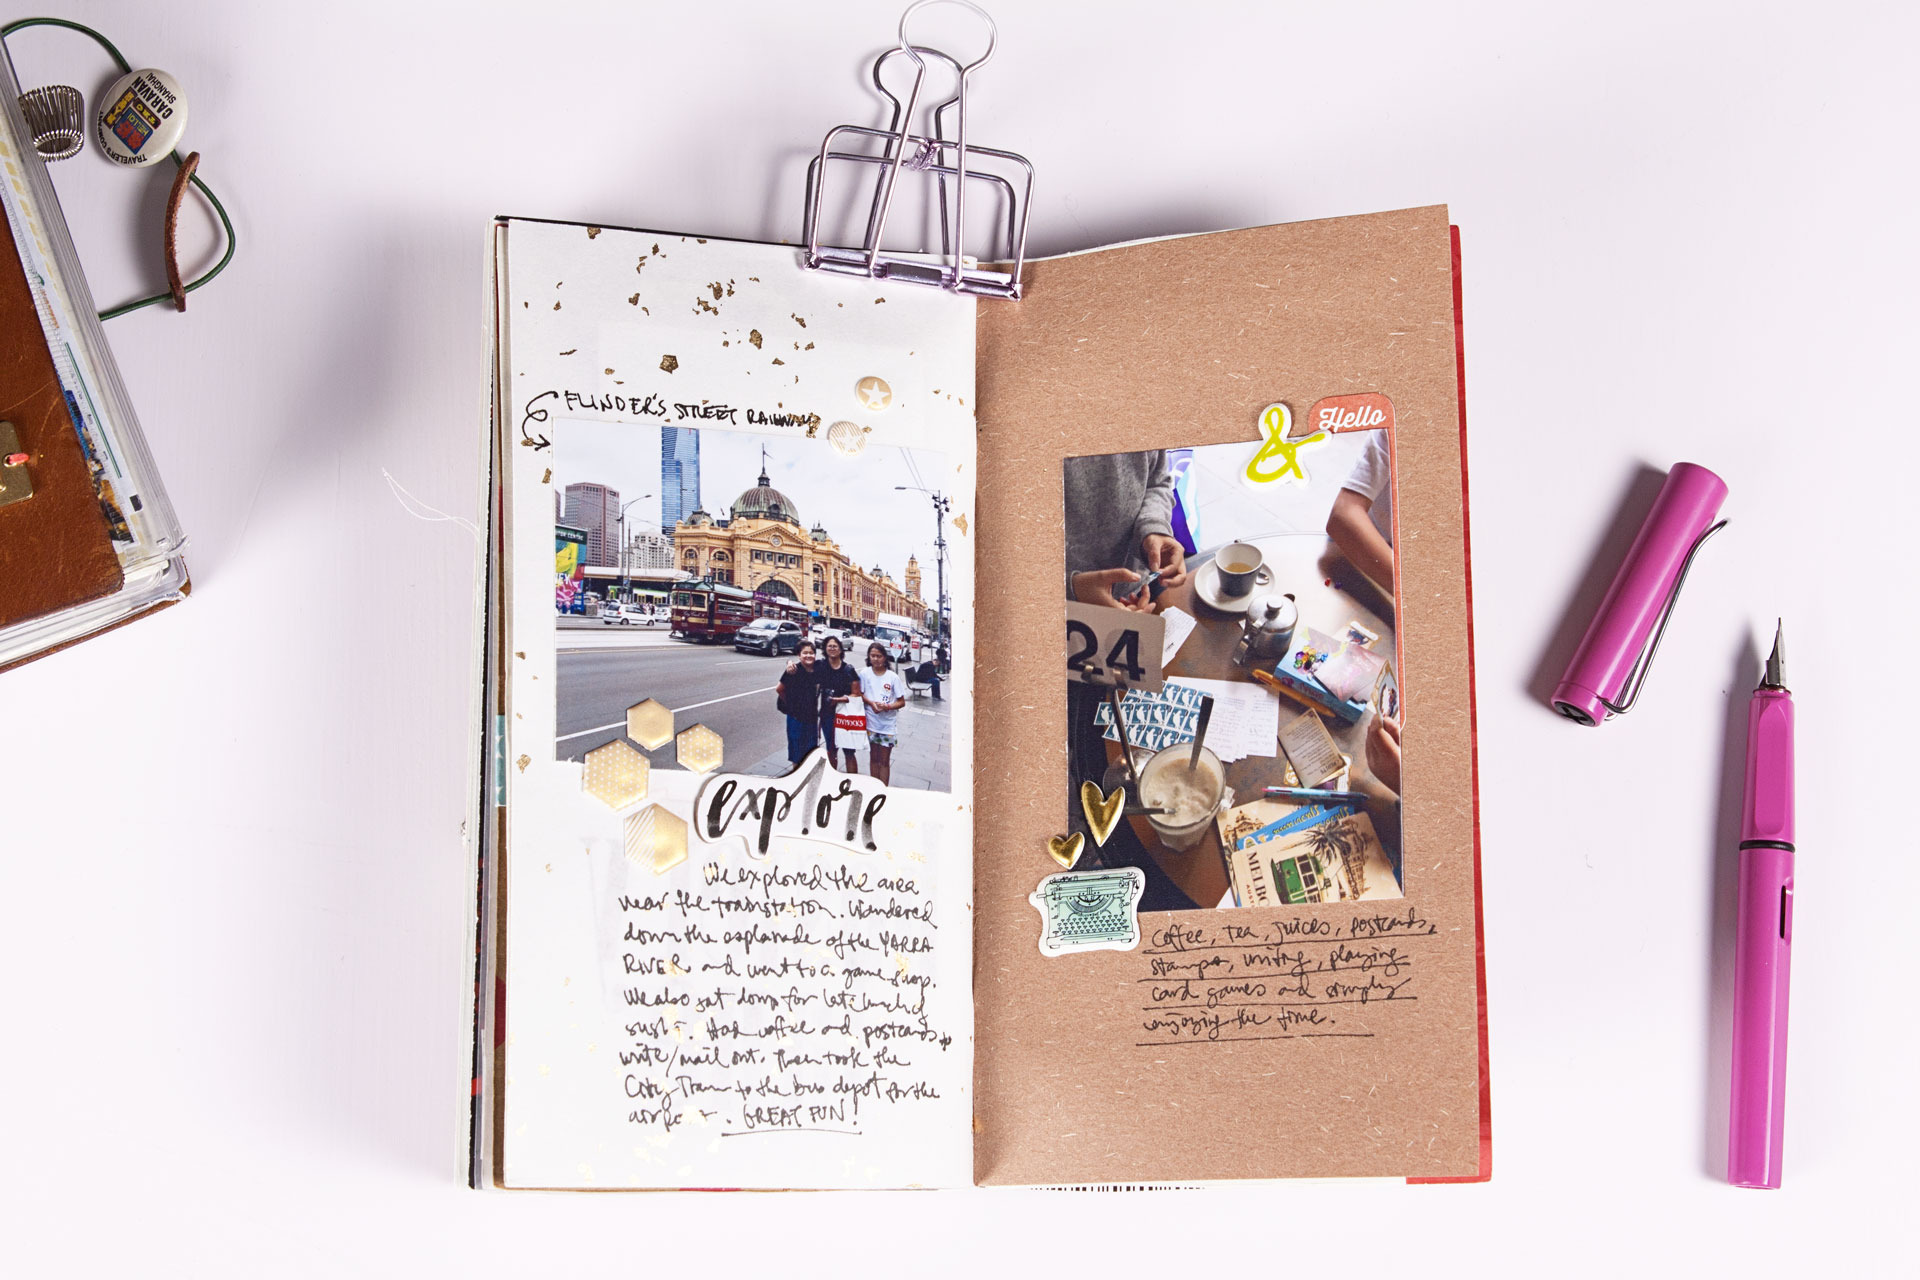 TRAVELER'S COMPANY
CARAVAN
SHANGHAI
HELLO!
FLINDER'S STREET RAILWAY
DYMOCKS
explore
We explored the area
near the trainstation. Wandered
down the esplanade of the YARRA
RIVER and went to a game shop.
We also sat down for late lunch of
sushi. Had coffee and postcards to
write/mail out. Then took the
City Tram to the bus depot for the
airport. GREAT FUN!
&
Hello
24
MELBO
coffee, tea, juices, postcards,
stamps, writing, playing
card games and simply
enjoying the time.